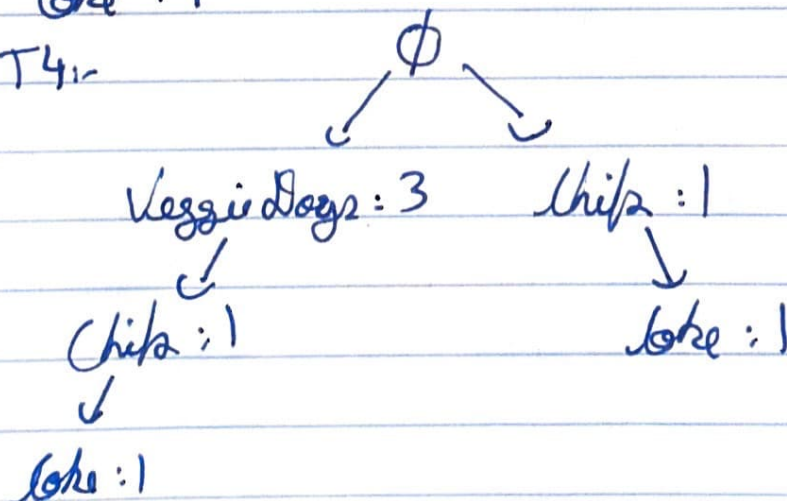 Coke
T4:-
φ
VeggieDogs: 3 Chips :1
Chips :1 Coke :1
Coke :1